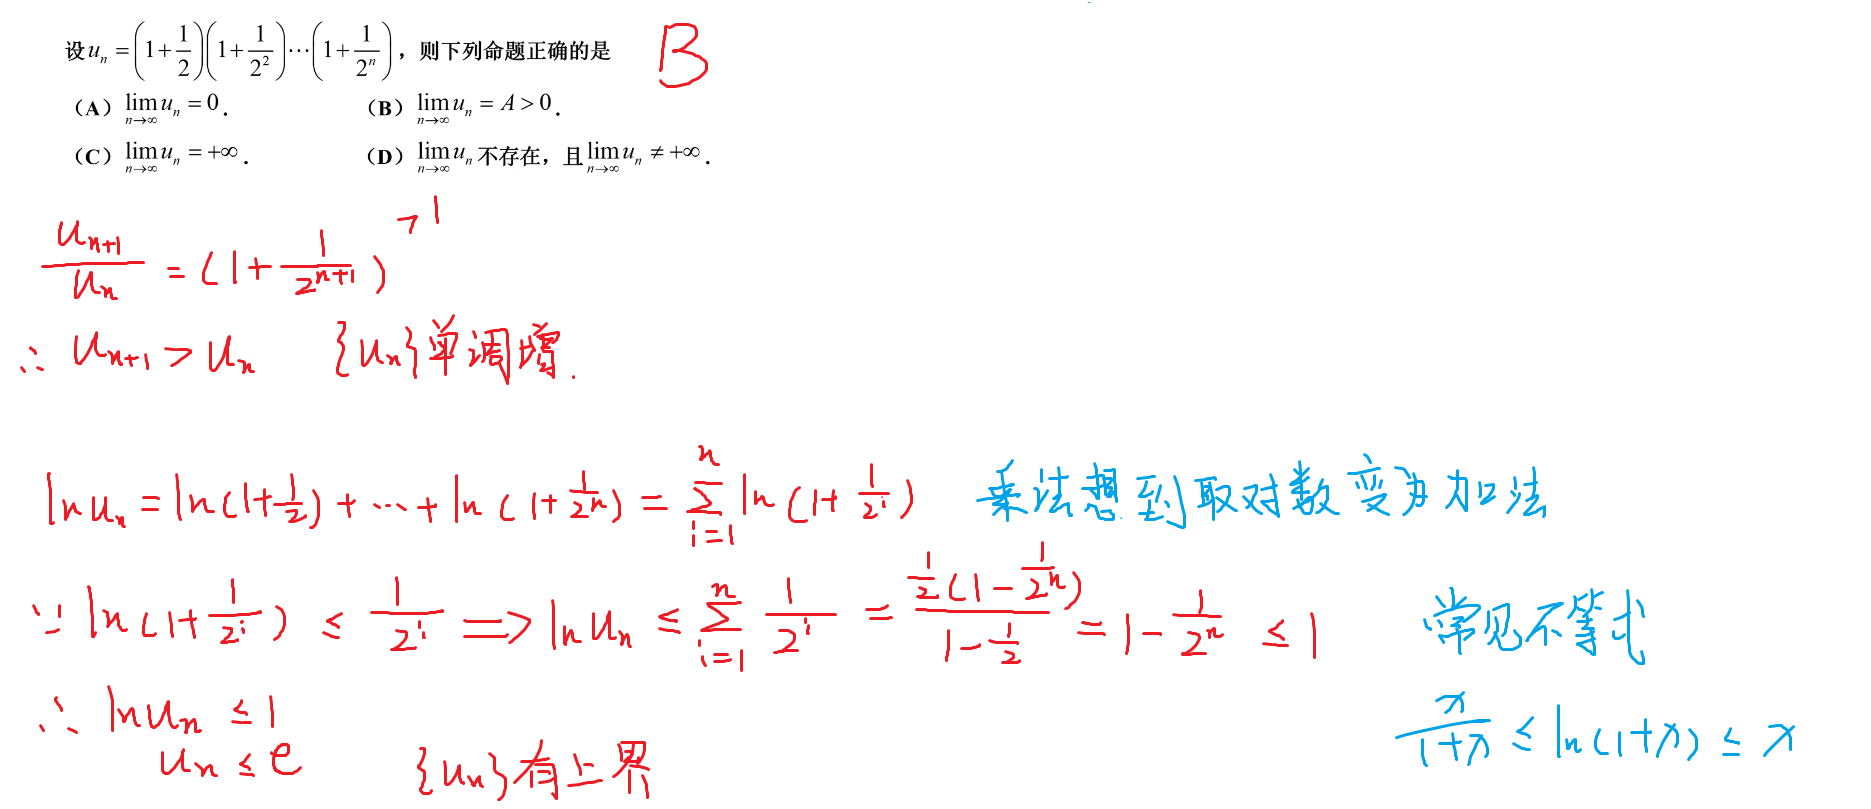 设 uₙ = (1+1/2)(1+1/2²)⋯(1+1/2ⁿ)，则下列命题正确的是 B
（A）lim_{n→∞} uₙ = 0． （B）lim_{n→∞} uₙ = A > 0．
（C）lim_{n→∞} uₙ = +∞． （D）lim_{n→∞} uₙ 不存在，且 lim_{n→∞} uₙ ≠ +∞．
uₙ₊₁/uₙ = (1+1/2ⁿ⁺¹) >1
∴ uₙ₊₁ > uₙ {uₙ}单调增.
ln uₙ = ln(1+1/2) + ⋯ + ln(1+1/2ⁿ) = ∑_{i=1}^{n} ln(1+1/2ⁱ) 乘法想到取对数变为加法
∵ ln(1+1/2ⁱ) ≤ 1/2ⁱ ⟹ ln uₙ ≤ ∑_{i=1}^{n} 1/2ⁱ = (1/2(1-1/2ⁿ))/(1-1/2) = 1-1/2ⁿ ≤ 1 常见不等式
∴ ln uₙ ≤ 1 x/(1+x) ≤ ln(1+x) ≤ x
uₙ ≤ e {uₙ}有上界